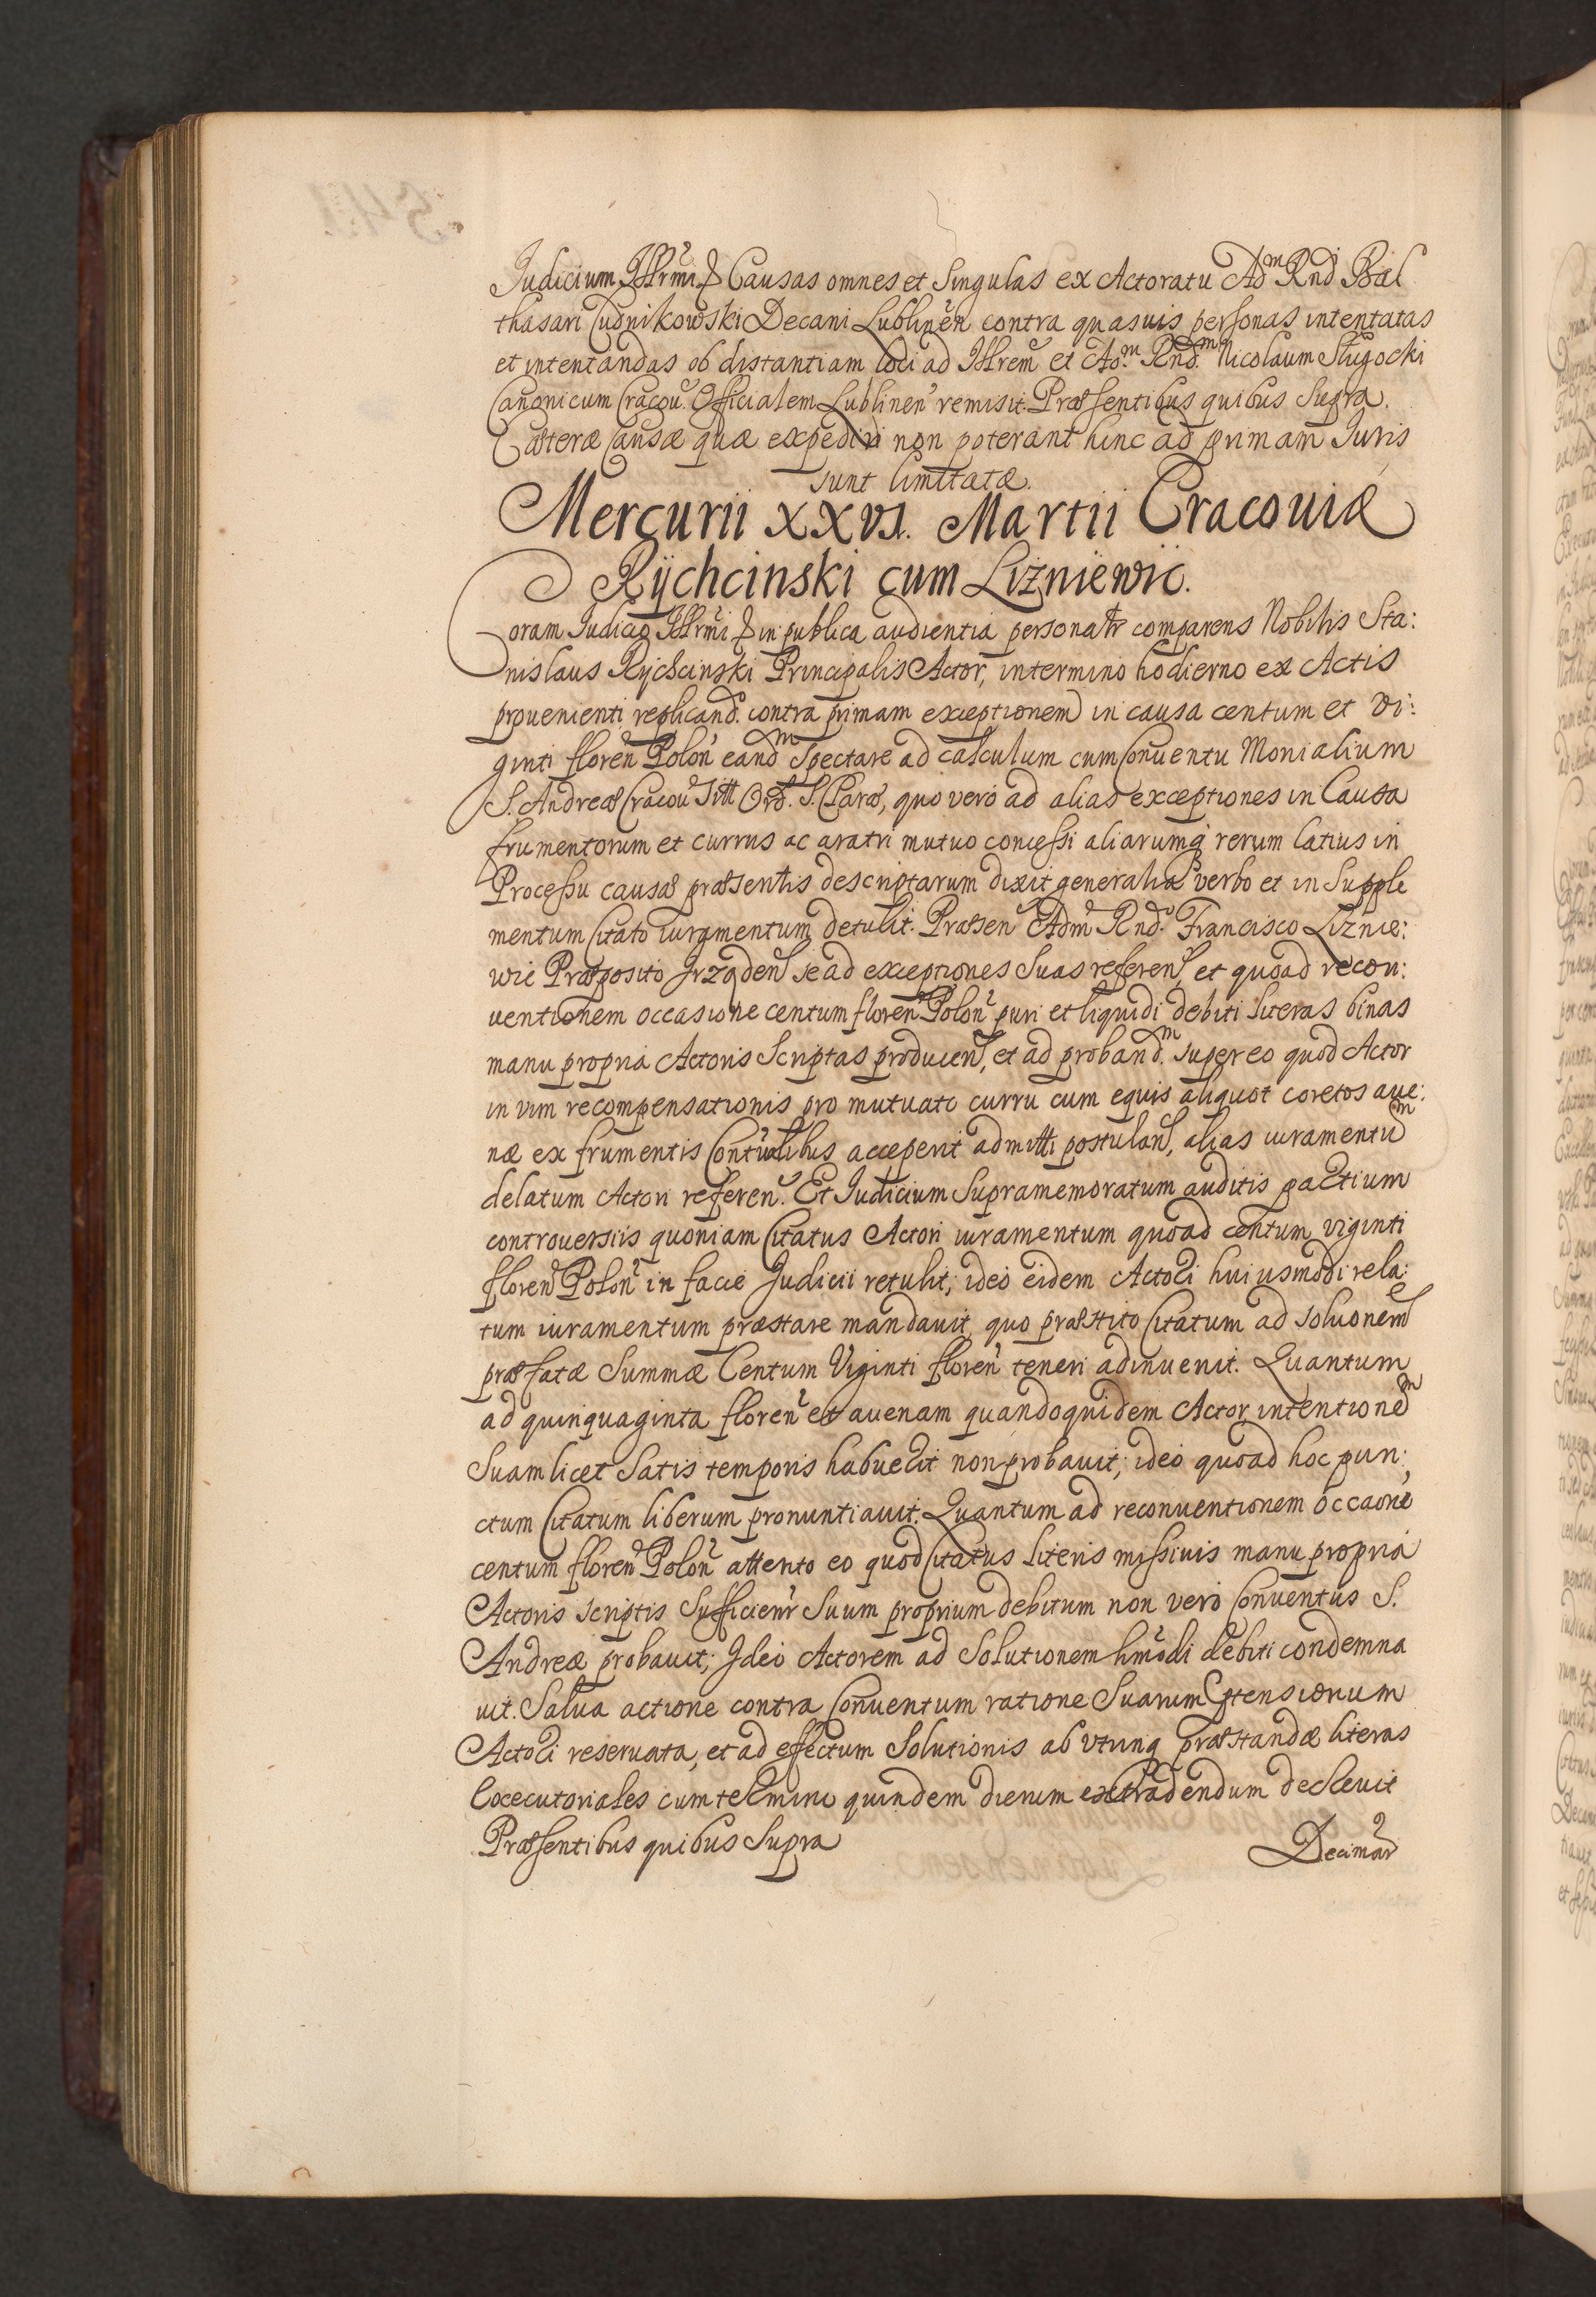 Judicium Illrmi & Causas omnes et Singulas ex Actoratu Adm Rndi Bal
thasari Cudnikowski Decani Lublinen contra quasuis personas intentatas
et intentandas ob distantiam loci ad Illrem et Adm. Rnd.m Nicolaum Slugocki
Canonicum Cracou. Officialem Lublinen remisit. Præsentibus quibus Supra.
Cæteræ Causæ quæ expediri non poterant hinc ad primam Juris
sunt limitatæ.
Mercurii XXVI. Martii Cracouiæ
Rÿchcinski cum Lizniewic.
Coram Judicio Illrmi & in publica audientia personatr comparens Nobilis Sta:
nislaus Rÿchcinski Principalis Actor, in termino hodierno ex Actis
prouenienti replicand. contra primam exceptionem in causa centum et vi:
ginti floren Polon eandm Spectare ad calculum cum Conuentu Monialium
S. Andreæ Cracou Titt Ord. S. Claræ, quo vero ad alias exceptiones in Causa
frumentorum et currus ac aratri mutuo concessi aliarumq rerum latius in
Processu causæ præsentis descriptarum dixit generalia verbo et in Supple
mentum Citato iuramentum detulit. Præsen Adm Rnd. Francisco Liznie:
wic Præposito Jrządzen se ad exceptiones Suas referen, et quoad recon:
uentionem occasione centum floren Polon puri et liquidi debiti literas binas
manu propria Actoris Scriptas producen, et ad proband.m super eo quod Actor
in vim recompensationis pro mutuato curru cum equis aliquot coretos aue:
næ ex frumentis Contualibus acceperit admitti postulan, alias iuramentum
delatum Actori referen. Et Judicium Supramemoratum auditis partium
controuersiis quoniam Citatus Actori iuramentum quoad centum viginti
floren Polon in facie Judicii retulit; ideo eidem Actori huiusmodi rela:
tum iuramentum præstare mandauit, quo præstito Citatum ad Soluonem
præfatæ Summæ Centum Viginti floren teneri adinuenit. Quantum
ad quinquaginta floren et auenam quandoquidem Actor intentionem
Suam licet Satis temporis habuerit non probauit; ideo quoad hoc pun:
ctum Citatum liberum pronuntiauit. Quantum ad reconuentionem occaone
centum floren Polon attento eo quod Citatus literis missiuis manu propria
Actoris scriptis Sufficienr Suum proprium debitum non vero Conuentus S.
Andreæ probauit; Ideo Actorem ad Solutionem hmodi debiti condemna
uit. Salua actione contra Conuentum ratione Suarum ptensionum
Actori reseruata, et ad effectum Solutionis ab vtrinq præstandæ literas
Executoriales cum termino quindem dierum extradendum decreuit
Præsentibus quibus Supra
Decimar